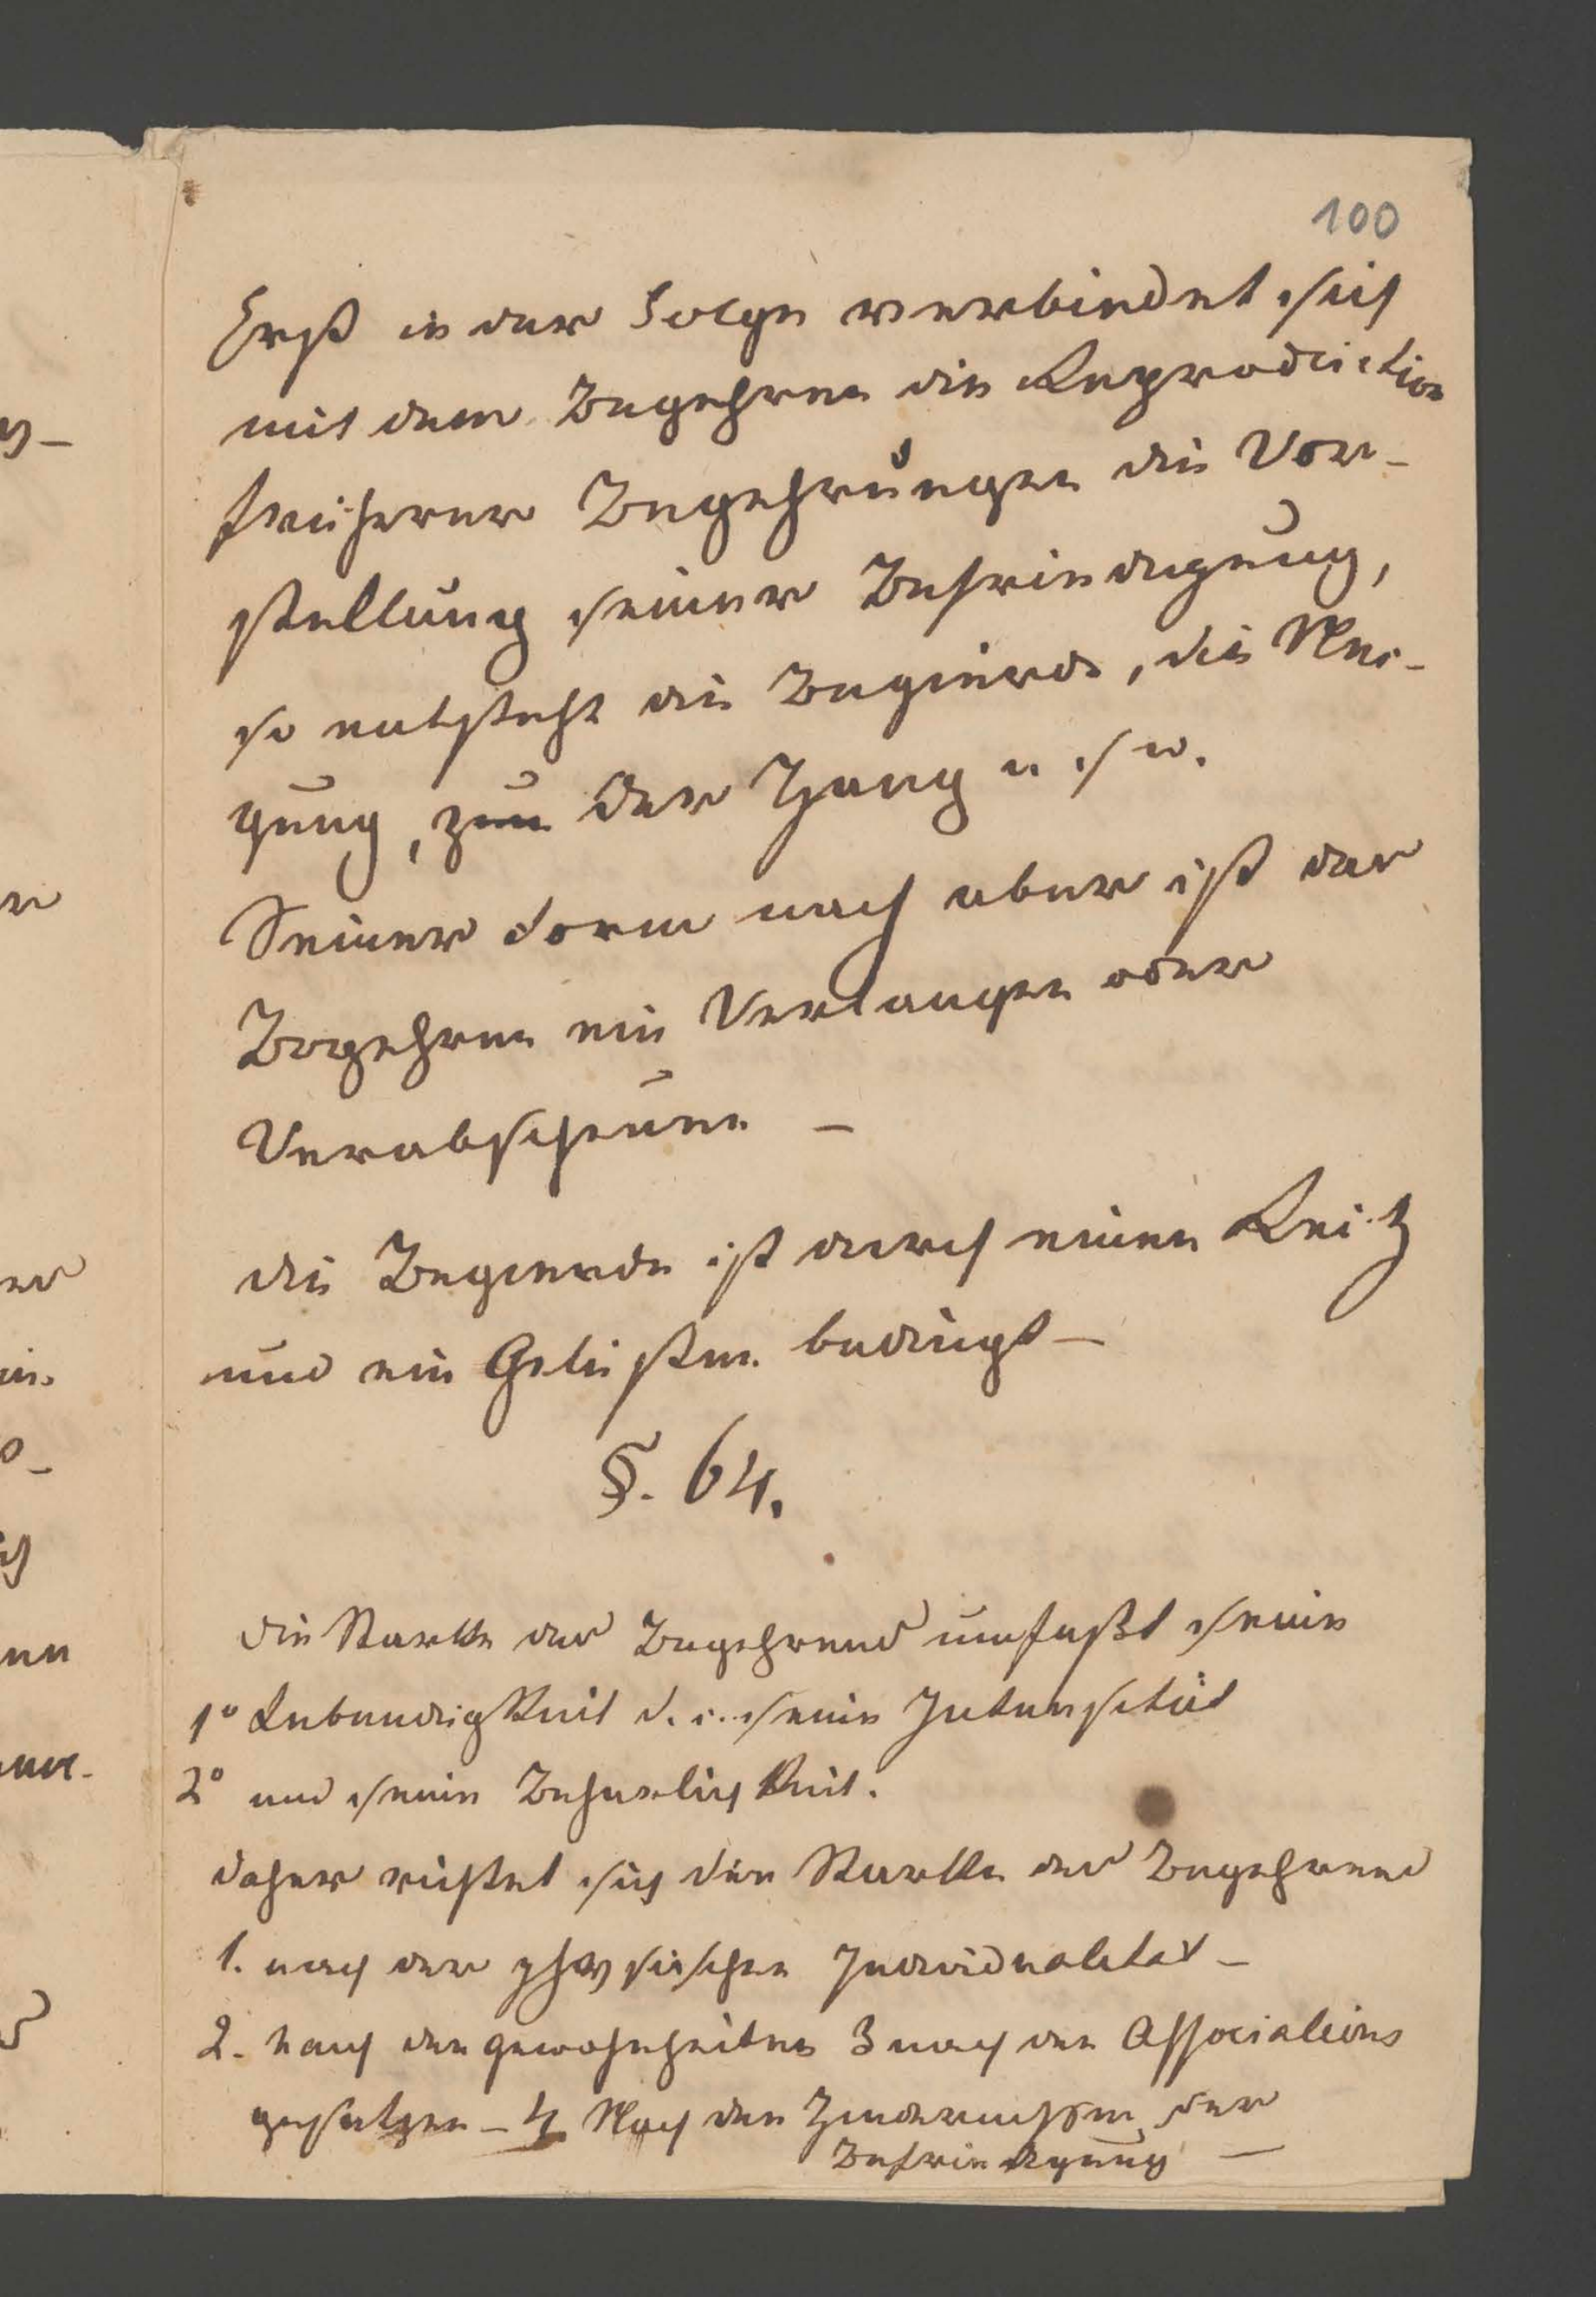 100
Erst in der Folge verbindet sich
mit dem Begehren die Reproduction
früherer Begehrungen die Vor-
stellung seiner Befriedigung,
so entsteht die Begierde, die Nei-
gung, zum der Hang u. s w.
Seiner Form nach aber ist das
Begehren ein Verlangen oder
Verabscheuen –
die Begierde ist durch einen Reitz
und ein Gelüsten bedingt –
§. 64.
die Starke des Begehrens umfaßt seine
1° Lebendigkeit d. i. seine Intensität
2° und seine Beharlichkeit.
daher richtet sich die Starke des Begehrens
1. nach der physischen Individualitat –
2. nach den Gewohnheiten 3 nach den Associations
gesetzen – 4 Nach den Hindernissen der
Befriedigung –